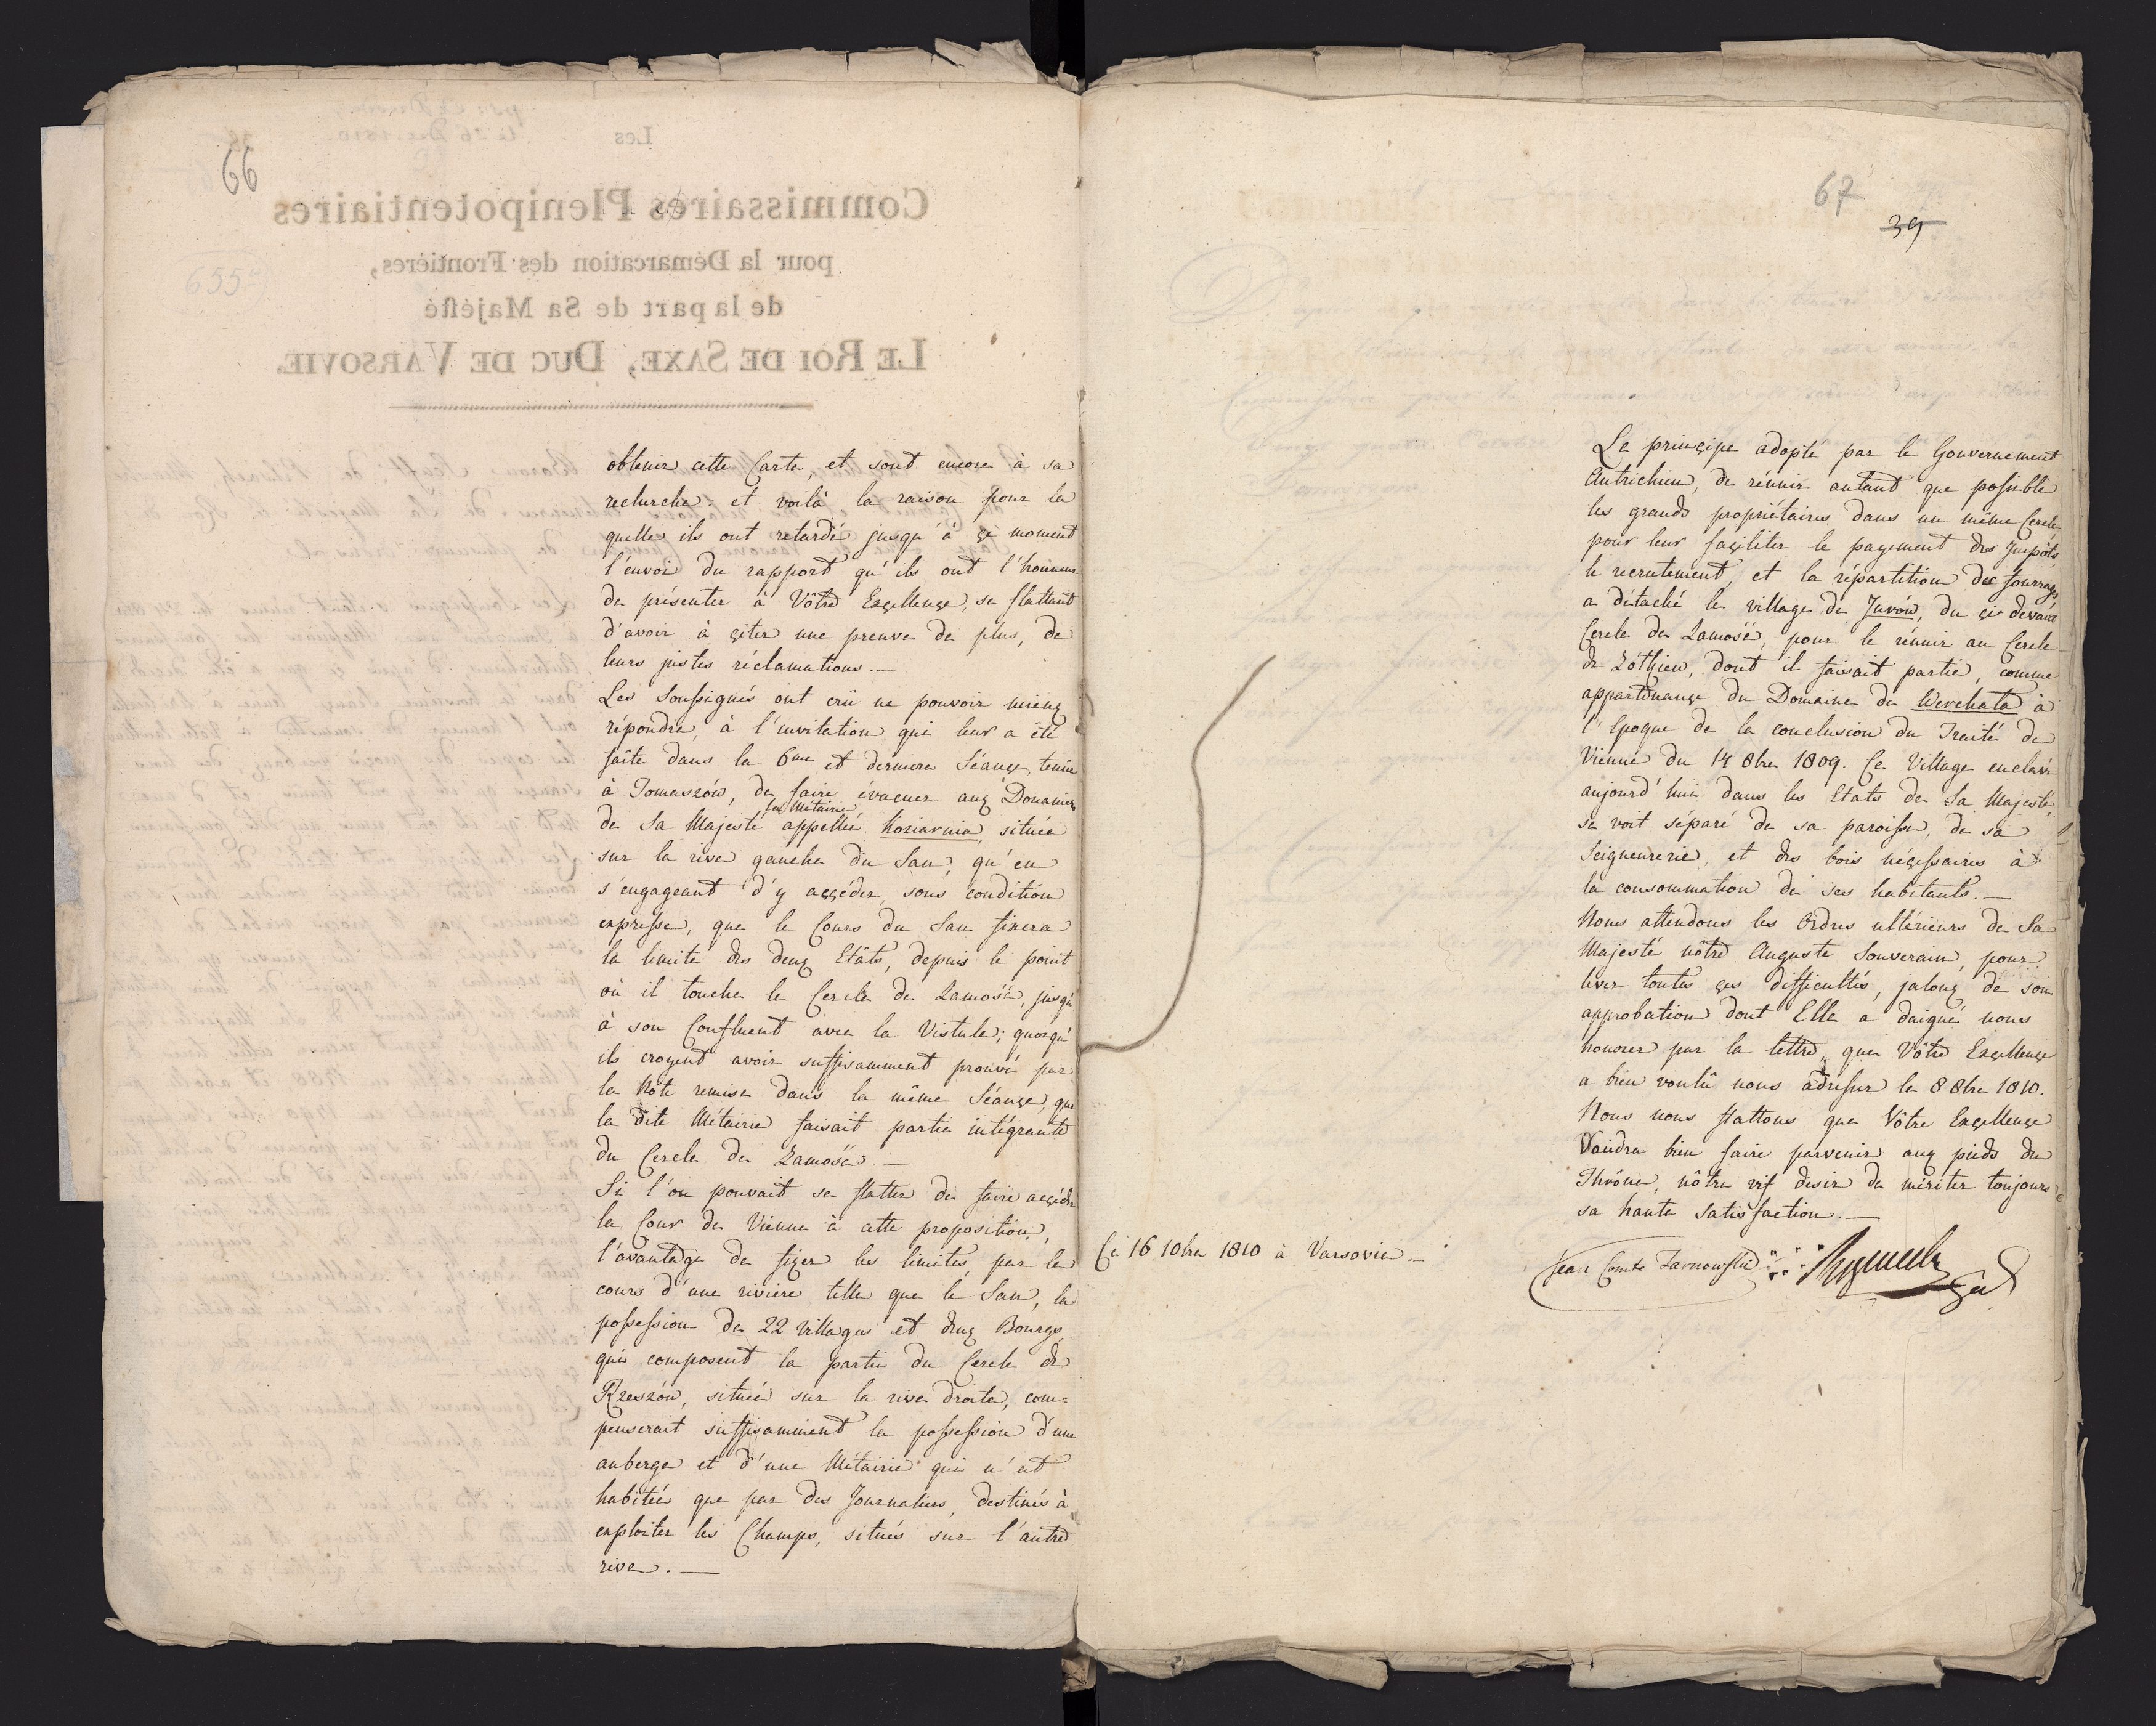 66
obtenir cette Carte, et sont encore à sa
recherche: et voilà la raison pour la
quelle ils ont retardé jusqu'à çe moment
l'envoi du rapport qu'ils ont l'honneur
de présenter à Vôtre Exçellençe, se flattant
d'avoir à çiter une preuve de plus, de
leurs justes réclamations.—
Les Soussignés ont crû ne pouvoir mieux
répondre, à l'invitation qui leur a été
faîte dans la 6me et derniere Séançe, tenüe
à Tomaszów, de faire évacuer aux Douaniers
de Sa Majesté la Métairie appellée Koziarnia, située
sur la rive gauche du San, qu'en
s'engageant d'y açcéder, sous condition
expresse, que le Cours du San fixera
la limite des deux Etâts, depuis le point
où il touche le Cercle de Zamość, jusqu'
à son Confluent avec la Vistule; quoiqu'
ils croyent avoir suffisamment prouvé par
la Note remise dans la même Séançe, que
la dite Métairie faisait partie intégrante
du Cercle de Zamość.—
Si l'on pouvait se flatter de faire açcéder
la Cour de Vienne à cette proposition,
l'avantage de fixer les limites, par le
cours d'une riviere telle que le San, la
possession de 22 Villages et deux Bourgs,
qui composent la partie du Cercle de
Rzeszów, située sur la rive droite, com=
penserait suffisamment la possession d'une
auberge et d'une Métairie qui n'est
habitée que par des Journaliers, destinés à
exploiter les Champs, situés sur l'autre
rive.—
67
39
Le prinçipe adopté par le Gouvernement
Autrichien, de réunir autant que possible
les grands propriétaires dans un même Cercle
pour leur façiliter le payement des Impôts,
le recrutement, et la répartition des fourrages,
a détaché le village de Jurów, du çi-devant
Cercle de Zamość, pour le réunir au Cercle
de Zółkiew, dont il faisait partie, comme
appartenançe du Domaine de Werchata à
l'Epoque de la conclusion du Traité de
Vienne du 14 8bre 1809. Ce Village enclavé
aujourd'hui dans les Etats de Sa Majesté,
se voit séparé de sa paroisse, de sa
Seigneurerie, et des bois néçessaires à
la consommation de ses habitants.—
Nous attendons les Ordres ultérieurs de Sa
Majesté nôtre Auguste Souverain, pour
lever toutes çes difficultés, jaloux de son
approbation dont Elle a daigné nous
honorer par la lettre, que Vôtre Exçellençe
a bien voulû nous adresser le 8 8bre 1810.
Nous nous flattons que Vôtre Exçellençe
Voudra bien faire parvenir aux pieds du
Thrône, nôtre vif desir de mériter toujours
sa haute Satisfaction.—
Ce 16 10bre 1810 à Varsovie.—
Jean Comte Tarnowski